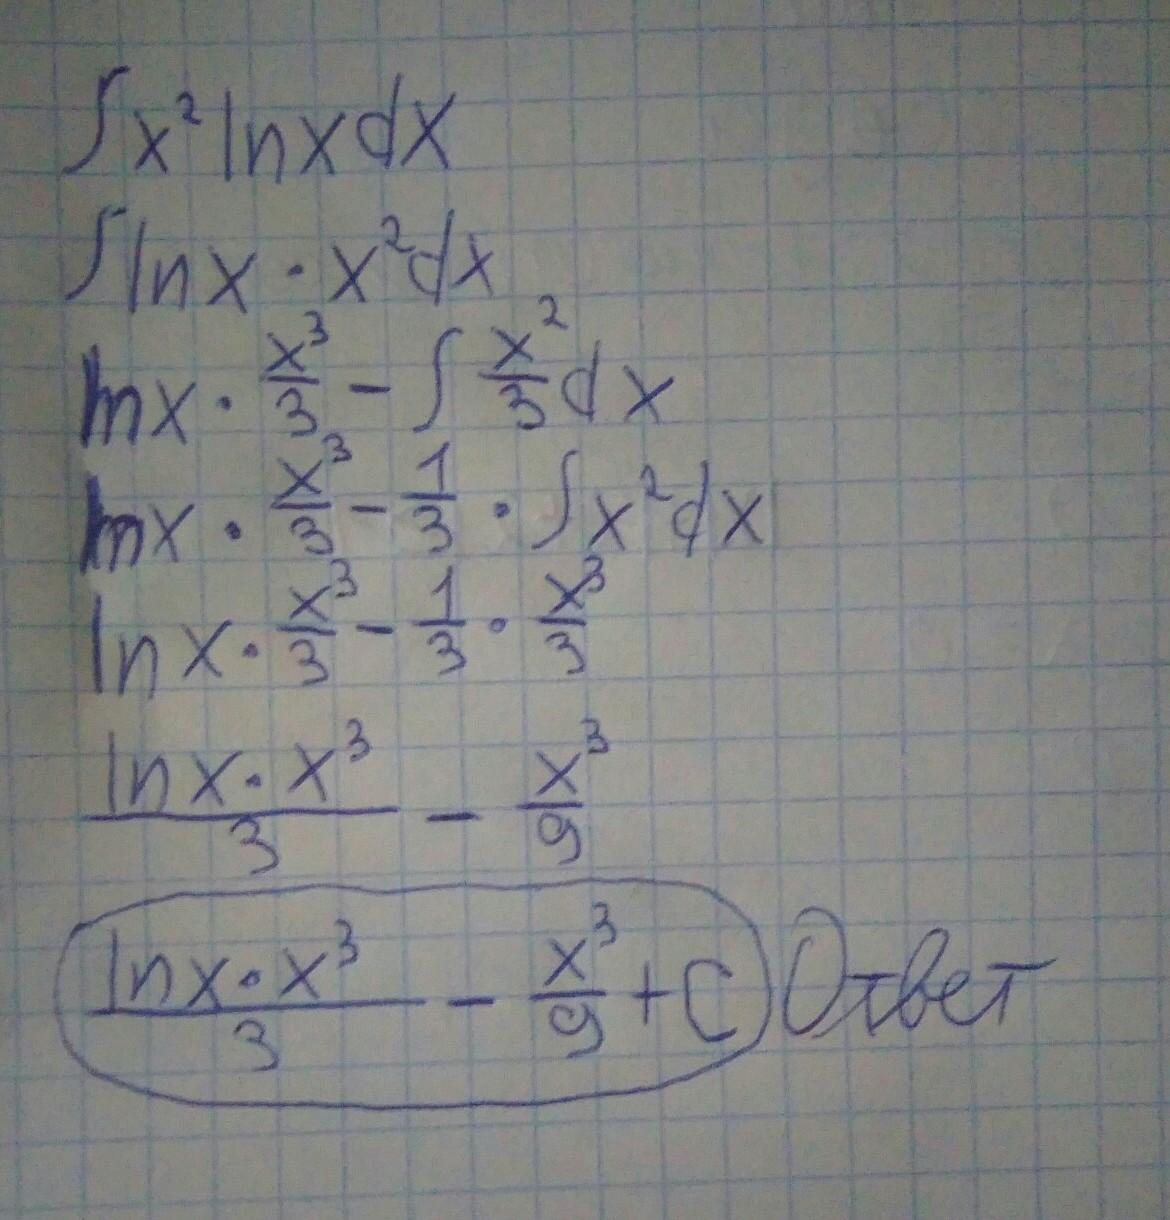 ∫x²lnxdx
∫lnx · x²dx
lnx · x³/3 - ∫ x²/3 dx
lnx · x³/3 - 1/3 · ∫x²dx
lnx · x³/3 - 1/3 · x³/3
lnx · x³/3 - x³/9
lnx · x³/3 - x³/9 + C Ответ